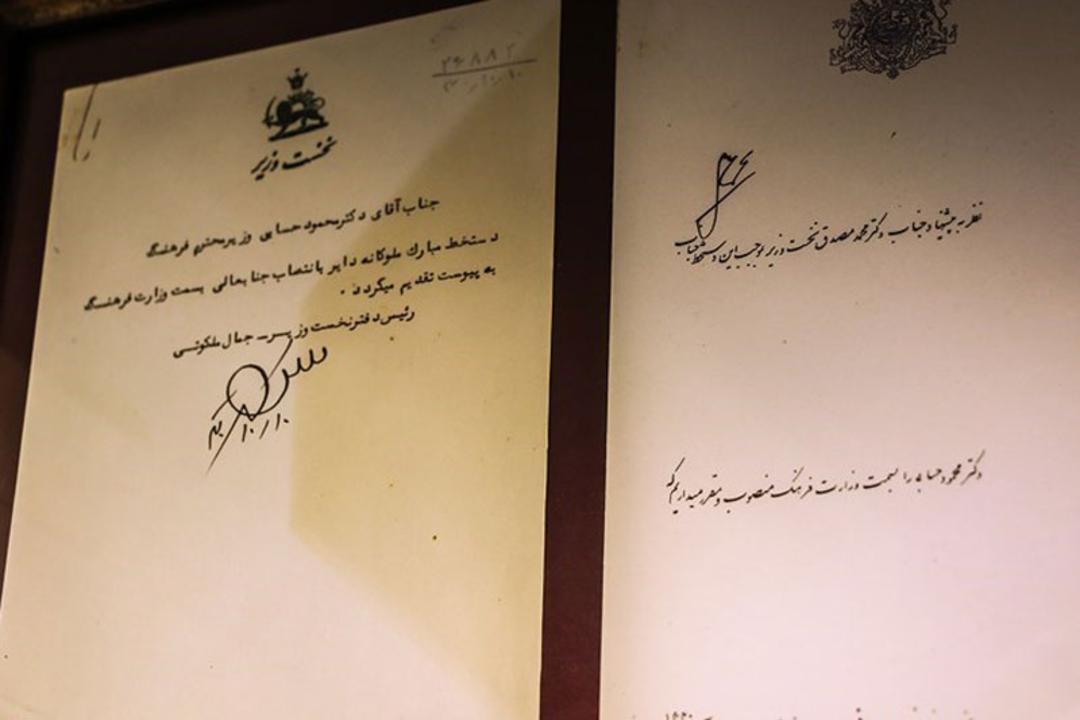 ۲۴۸۸۲
نخست وزیر
جناب آقای دکتر محمود حسابی وزیر محترم فرهنگ
دستخط مبارک ملوکانه دایر بانتصاب جنابعالی بسمت وزارت فرهنگ
به پیوست تقدیم میگردد .
رئیس دفتر نخست وزیر ــ جمال ملکوتی
۱۰ر۱۰ر
نظر به پیشنهاد جناب دکتر محمد مصدق نخست وزیر بموجب این دستخط جناب
دکتر محمود حسابی را بسمت وزارت فرهنگ منصوب و مقرر میداریم که